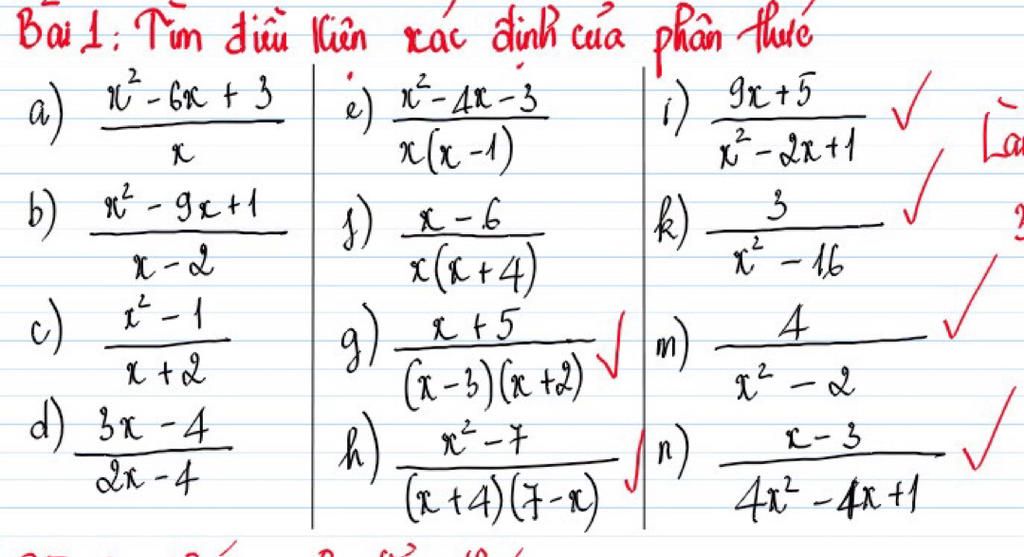 Bài 1: Tìm điều kiện xác định của phân thức
a) \frac{x^2 - 6x + 3}{x}
b) \frac{x^2 - 9x + 1}{x - 2}
c) \frac{x^2 - 1}{x + 2}
d) \frac{3x - 4}{2x - 4}
e) \frac{x^2 - 4x - 3}{x(x - 1)}
f) \frac{x - 6}{x(x + 4)}
g) \frac{x + 5}{(x - 3)(x + 2)} ✓
h) \frac{x^2 - 7}{(x + 4)(7 - x)} ✓
i) \frac{9x + 5}{x^2 - 2x + 1} ✓
k) \frac{3}{x^2 - 16} ✓
m) \frac{4}{x^2 - 2} ✓
n) \frac{x - 3}{4x^2 - 4x + 1} ✓